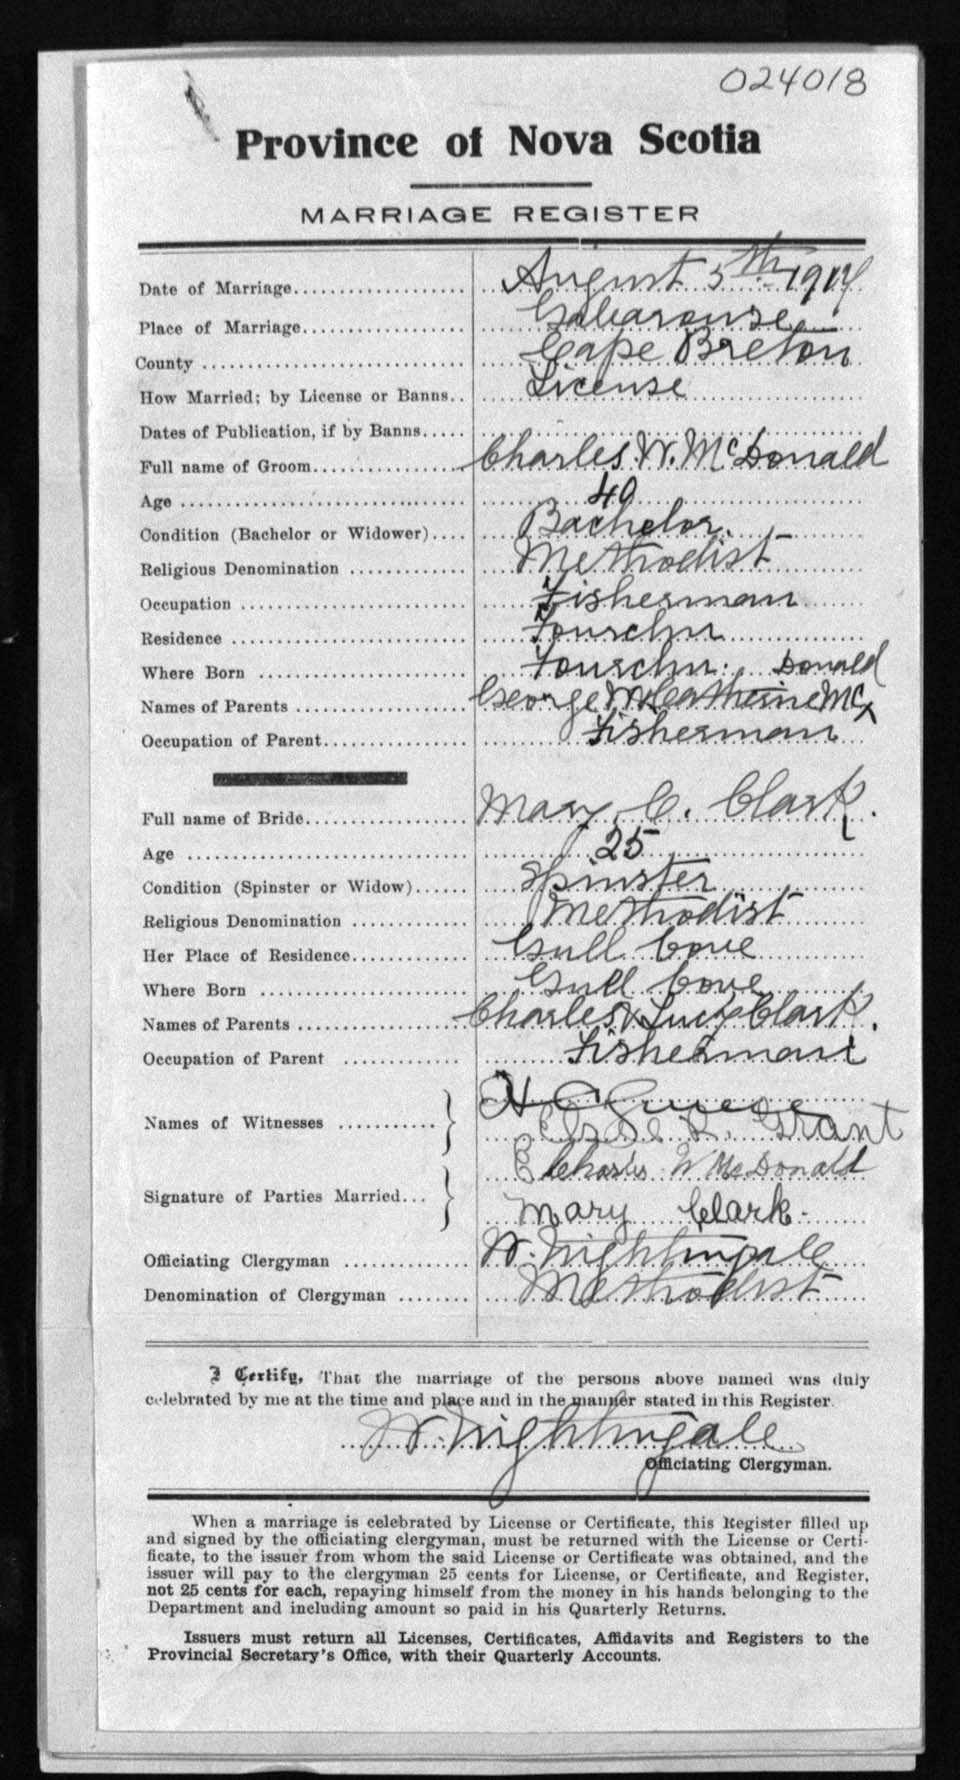 024018
Province of Nova Scotia
MARRIAGE REGISTER
Date of Marriage................... August 5th 1914
Place of Marriage.................. Gabarouse
County ............................. Cape Breton
How Married; by License or Banns.. License
Dates of Publication, if by Banns.....
Full name of Groom................. Charles W. McDonald
Age ................................ 40
Condition (Bachelor or Widower).... Bachelor.
Religious Denomination ............. Methodist
Occupation ......................... Fisherman
Residence .......................... Fourchu
Where Born ........................ Fourchu. Donald
Names of Parents ................... George Catherine Mc
Occupation of Parent................ Fisherman
Full name of Bride.................. Mary C. Clark.
Age ................................ 25
Condition (Spinster or Widow)...... Spinster
Religious Denomination ............. Methodist
Her Place of Residence.............. Gull Cove
Where Born ........................ Gull Cove
Names of Parents ................... Charles & Lucy Clark.
Occupation of Parent ............. Fisherman
H C
Names of Witnesses ...........
R. Grant
Charles W McDonald
Signature of Parties Married...
Mary Clark.
Officiating Clergyman .............. W. Nightingale
Denomination of Clergyman ........ Methodist
I Certify, That the marriage of the persons above named was duly
celebrated by me at the time and place and in the manner stated in this Register.
W. Nightingale
Officiating Clergyman.
When a marriage is celebrated by License or Certificate, this Register filled up
and signed by the officiating clergyman, must be returned with the License or Certi-
ficate, to the issuer from whom the said License or Certificate was obtained, and the
issuer will pay to the clergyman 25 cents for License, or Certificate, and Register,
not 25 cents for each, repaying himself from the money in his hands belonging to the
Department and including amount so paid in his Quarterly Returns.
Issuers must return all Licenses, Certificates, Affidavits and Registers to the
Provincial Secretary's Office, with their Quarterly Accounts.